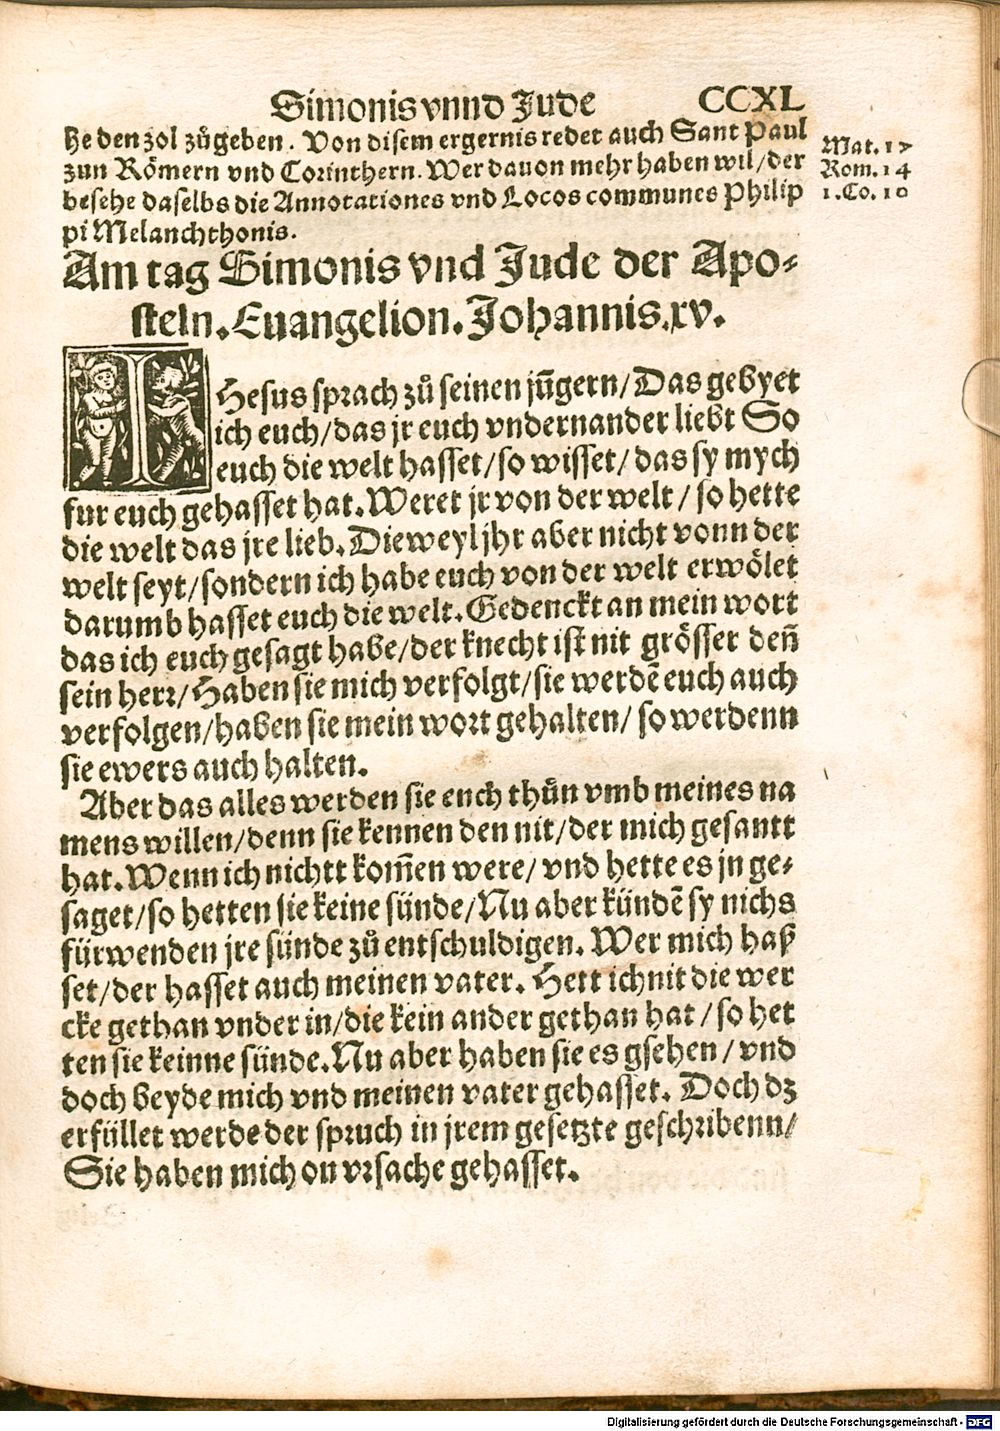 Simonis vnnd Jude CCXL
he den zol zůgeben. Von disem ergernis redet auch Sant Paul
zun Römern vnd Corinthern. Wer dauon mehr haben wil/der
besehe daselbs die Annotationes vnd Locos communes Philip
pi Melanchthonis.
Mat. 17
Rom. 14
1. Co. 10
Am tag Simonis vnd Jude der Apo-
steln. Euangelion. Johannis. xv.
IHesus sprach zů seinen jūgern/Das gebyet
ich euch/das jr euch vndernander liebt So
euch die welt hasset/so wisset/das sy mych
fur euch gehasset hat. Weret jr von der welt/so hette
die welt das jre lieb. Dieweyl jhr aber nicht vonn der
welt seyt/sondern ich habe euch von der welt erwölet
darumb hasset euch die welt. Gedenckt an mein wort
das ich euch gesagt habe/der knecht ist nit grösser den̄
sein herr/Haben sie mich verfolgt/sie werdē euch auch
verfolgen/haben sie mein wort gehalten/so werdenn
sie ewers auch halten.
Aber das alles werden sie euch thůn vmb meines na
mens willen/denn sie kennen den nit/der mich gesantt
hat. Wenn ich nichtt kom̄en were/vnd hette es jn ge-
saget/so hetten sie keine sünde/Nu aber kündē sy nichs
fürwenden jre sünde zů entschuldigen. Wer mich haß
set/der hasset auch meinen vater. Hett ich nit die wer
cke gethan vnder in/die kein ander gethan hat/so het
ten sie keinne sünde. Nu aber haben sie es gsehen/vnd
doch beyde mich vnd meinen vater gehasset. Doch dz
erfüllet werde der spruch in jrem gesetzte geschribenn/
Sie haben mich on vrsache gehasset.
Digitalisierung gefördert durch die Deutsche Forschungsgemeinschaft - DFG